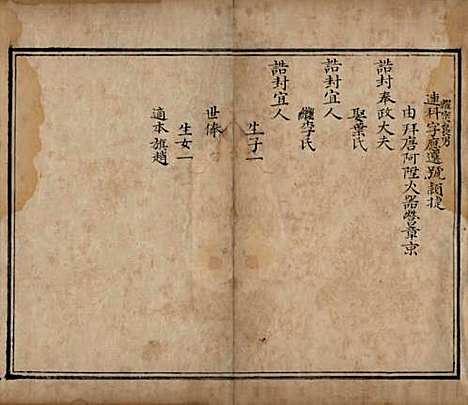 連科字應選號穎捷
由拜唐阿陞火器營章京
誥封奉政大夫
娶葉氏
誥封宜人
繼李氏
誥封宜人
生子一
世俸
生女一
適本旗趙